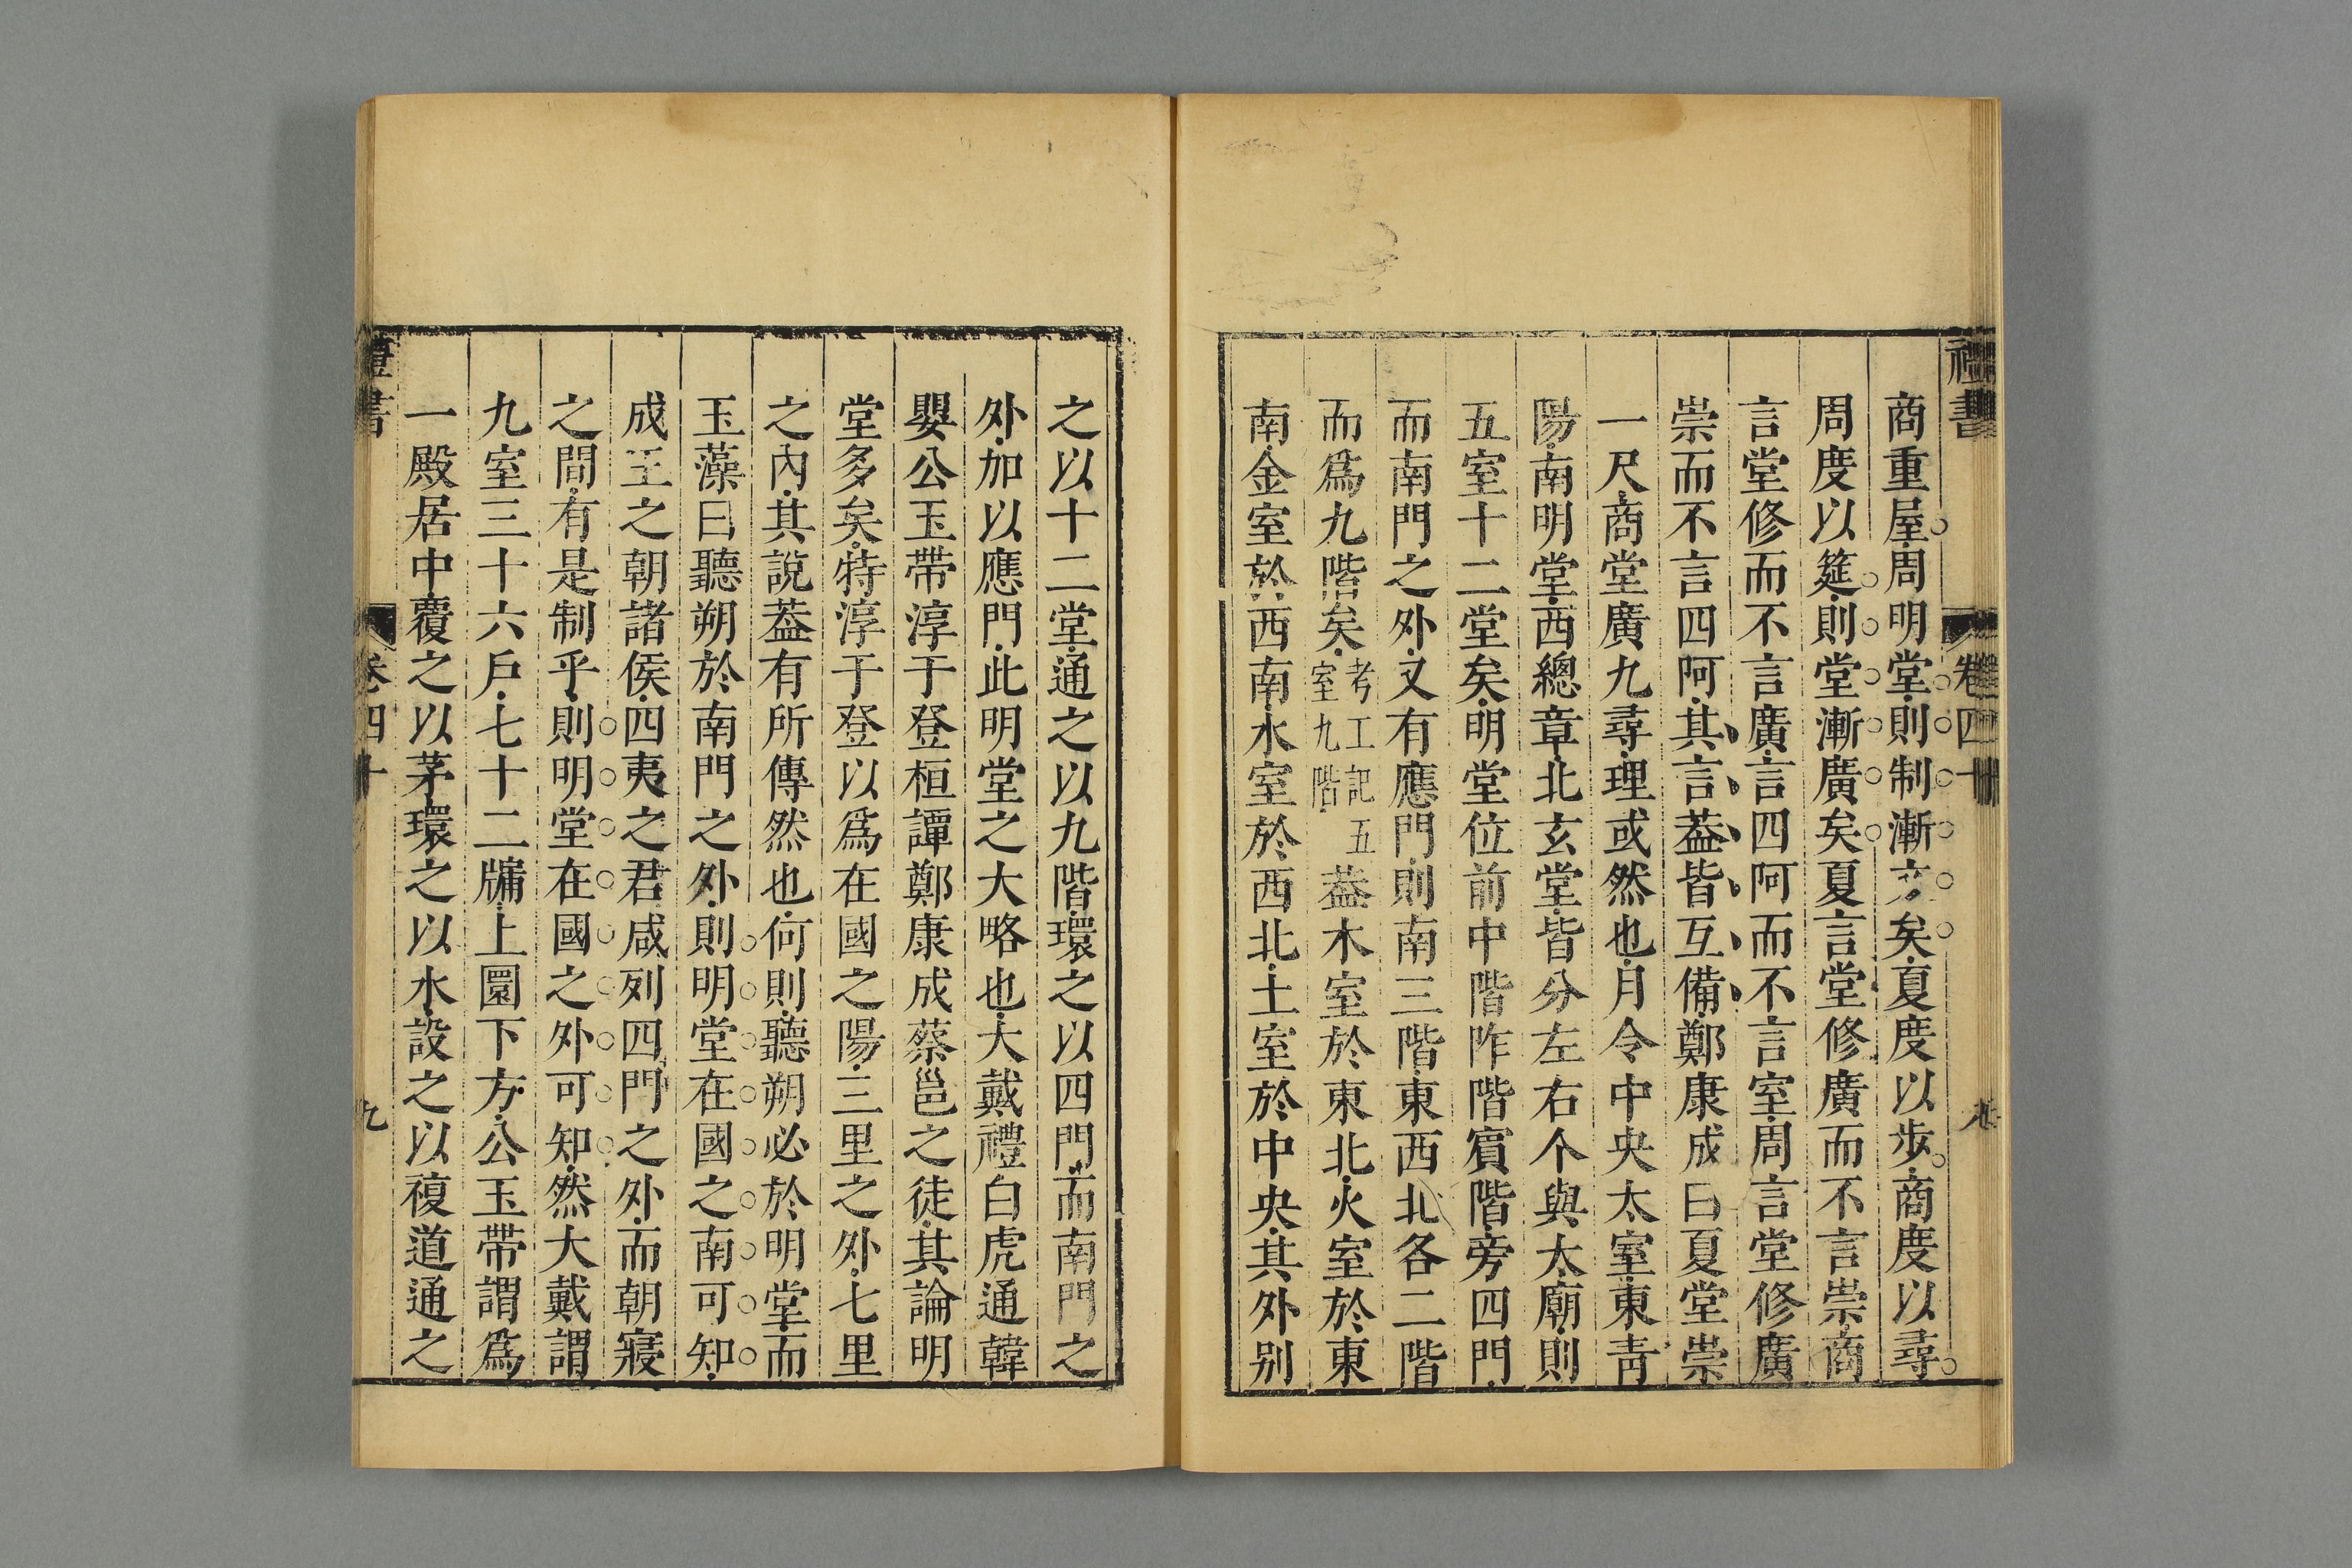 禮書
卷四十
商重屋周明堂則制漸文矣夏度以步商度以尋
周度以筵則堂漸廣矣夏言堂修廣而不言崇商
言堂修而不言廣言四阿而不言室周言堂修廣
崇而不言四阿其言葢皆互備鄭康成曰夏堂崇
一尺商堂廣九尋理或然也月令中央太室東青
陽南明堂西總章北玄堂皆分左右个與太廟則
五室十二堂矣明堂位前中階阼階賓階旁四門
而南門之外又有應門則南三階東西北各二階
而爲九階矣考工記五室九階葢木室於東北火室於東
南金室於西南水室於西北土室於中央其外别
之以十二堂通之以九階環之以四門而南門之
外加以應門此明堂之大略也大戴禮白虎通韓
嬰公玉帶淳于登桓譚鄭康成蔡邕之徒其論明
堂多矣特淳于登以爲在國之陽三里之外七里
之內其說葢有所傳然也何則聽朔必於明堂而
玉藻曰聽朔於南門之外則明堂在國之南可知
成王之朝諸侯四夷之君咸列四門之外而朝寢
之間有是制乎則明堂在國之外可知然大戴謂
九室三十六戶七十二牖上圓下方公玉帶謂爲
一殿居中覆之以茅環之以水設之以複道通之
禮書
卷四十
九